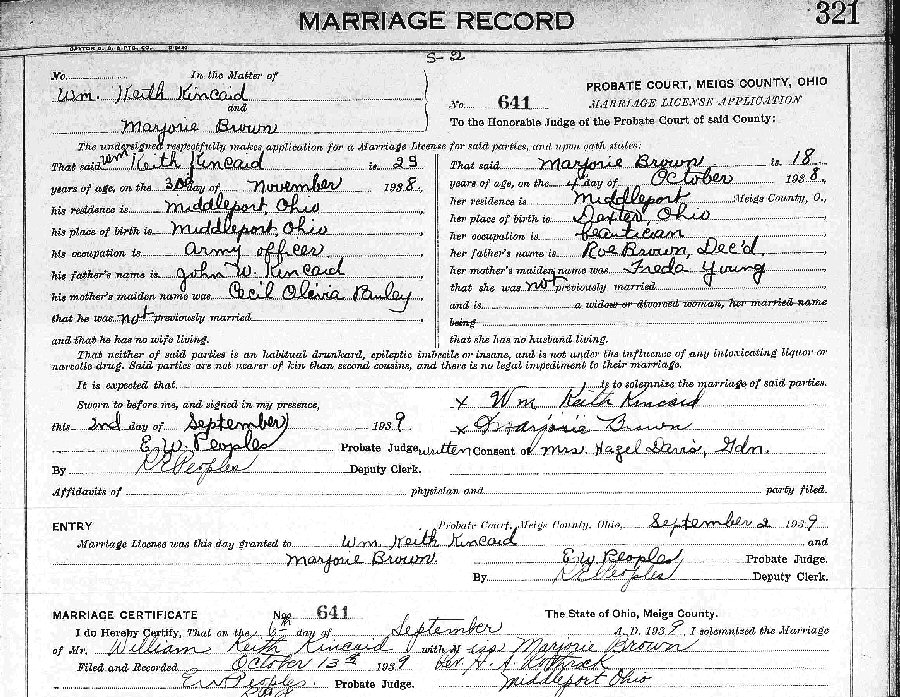 MARRIAGE RECORD 321
S-2
No. In the Matter of
Wm. Keith Kincaid
and
Marjorie Brown
PROBATE COURT, MEIGS COUNTY, OHIO
No. 641 MARRIAGE LICENSE APPLICATION
To the Honorable Judge of the Probate Court of said County:
The undersigned respectfully makes application for a Marriage License for said parties, and upon oath states:
That said Wm Keith Kincaid is 29
years of age, on the 30 day of November 1938,
his residence is Middleport, Ohio
his place of birth is Middleport, Ohio
his occupation is Army officer
his father's name is John W. Kincaid
his mother's maiden name was Cecil Olivia
that he was not previously married
and that he has no wife living.
That said Marjorie Brown is 18
years of age, on the 4 day of October 1938,
her residence is Middleport Meigs County, O.,
her place of birth is Dexter, Ohio
her occupation is beautician
her father's name is Roe Brown, Dec'd
her mother's maiden name was Freda Young
that she was not previously married
and is a widow or divorced woman, her married name
being
that she has no husband living.
That neither of said parties is an habitual drunkard, epileptic imbecile or insane, and is not under the influence of any intoxicating liquor or
narcotic drug. Said parties are not nearer of kin than second cousins, and there is no legal impediment to their marriage.
It is expected that is to solemnize the marriage of said parties.
Sworn to before me, and signed in my presence, x Wm Keith Kincaid
this 2nd day of September 1939 x Marjorie Brown
E. W. Peoples Probate Judge, written Consent of Mrs. Hazel Davis, Gdn.
By Peoples Deputy Clerk.
Affidavits of physician and party filed.
ENTRY Probate Court, Meigs County, Ohio, September 2 1939
Marriage License was this day granted to Wm Keith Kincaid and
Marjorie Brown. E. W. Peoples Probate Judge.
By Peoples Deputy Clerk.
MARRIAGE CERTIFICATE No. 641 The State of Ohio, Meigs County.
I do Hereby Certify, That on the 6th day of September A. D. 1939, I solemnized the Marriage
of Mr. William Keith Kincaid with Miss Marjorie Brown
Filed and Recorded October 13th 1939 Rev. H. A.
E W Peoples. Probate Judge. Middleport Ohio